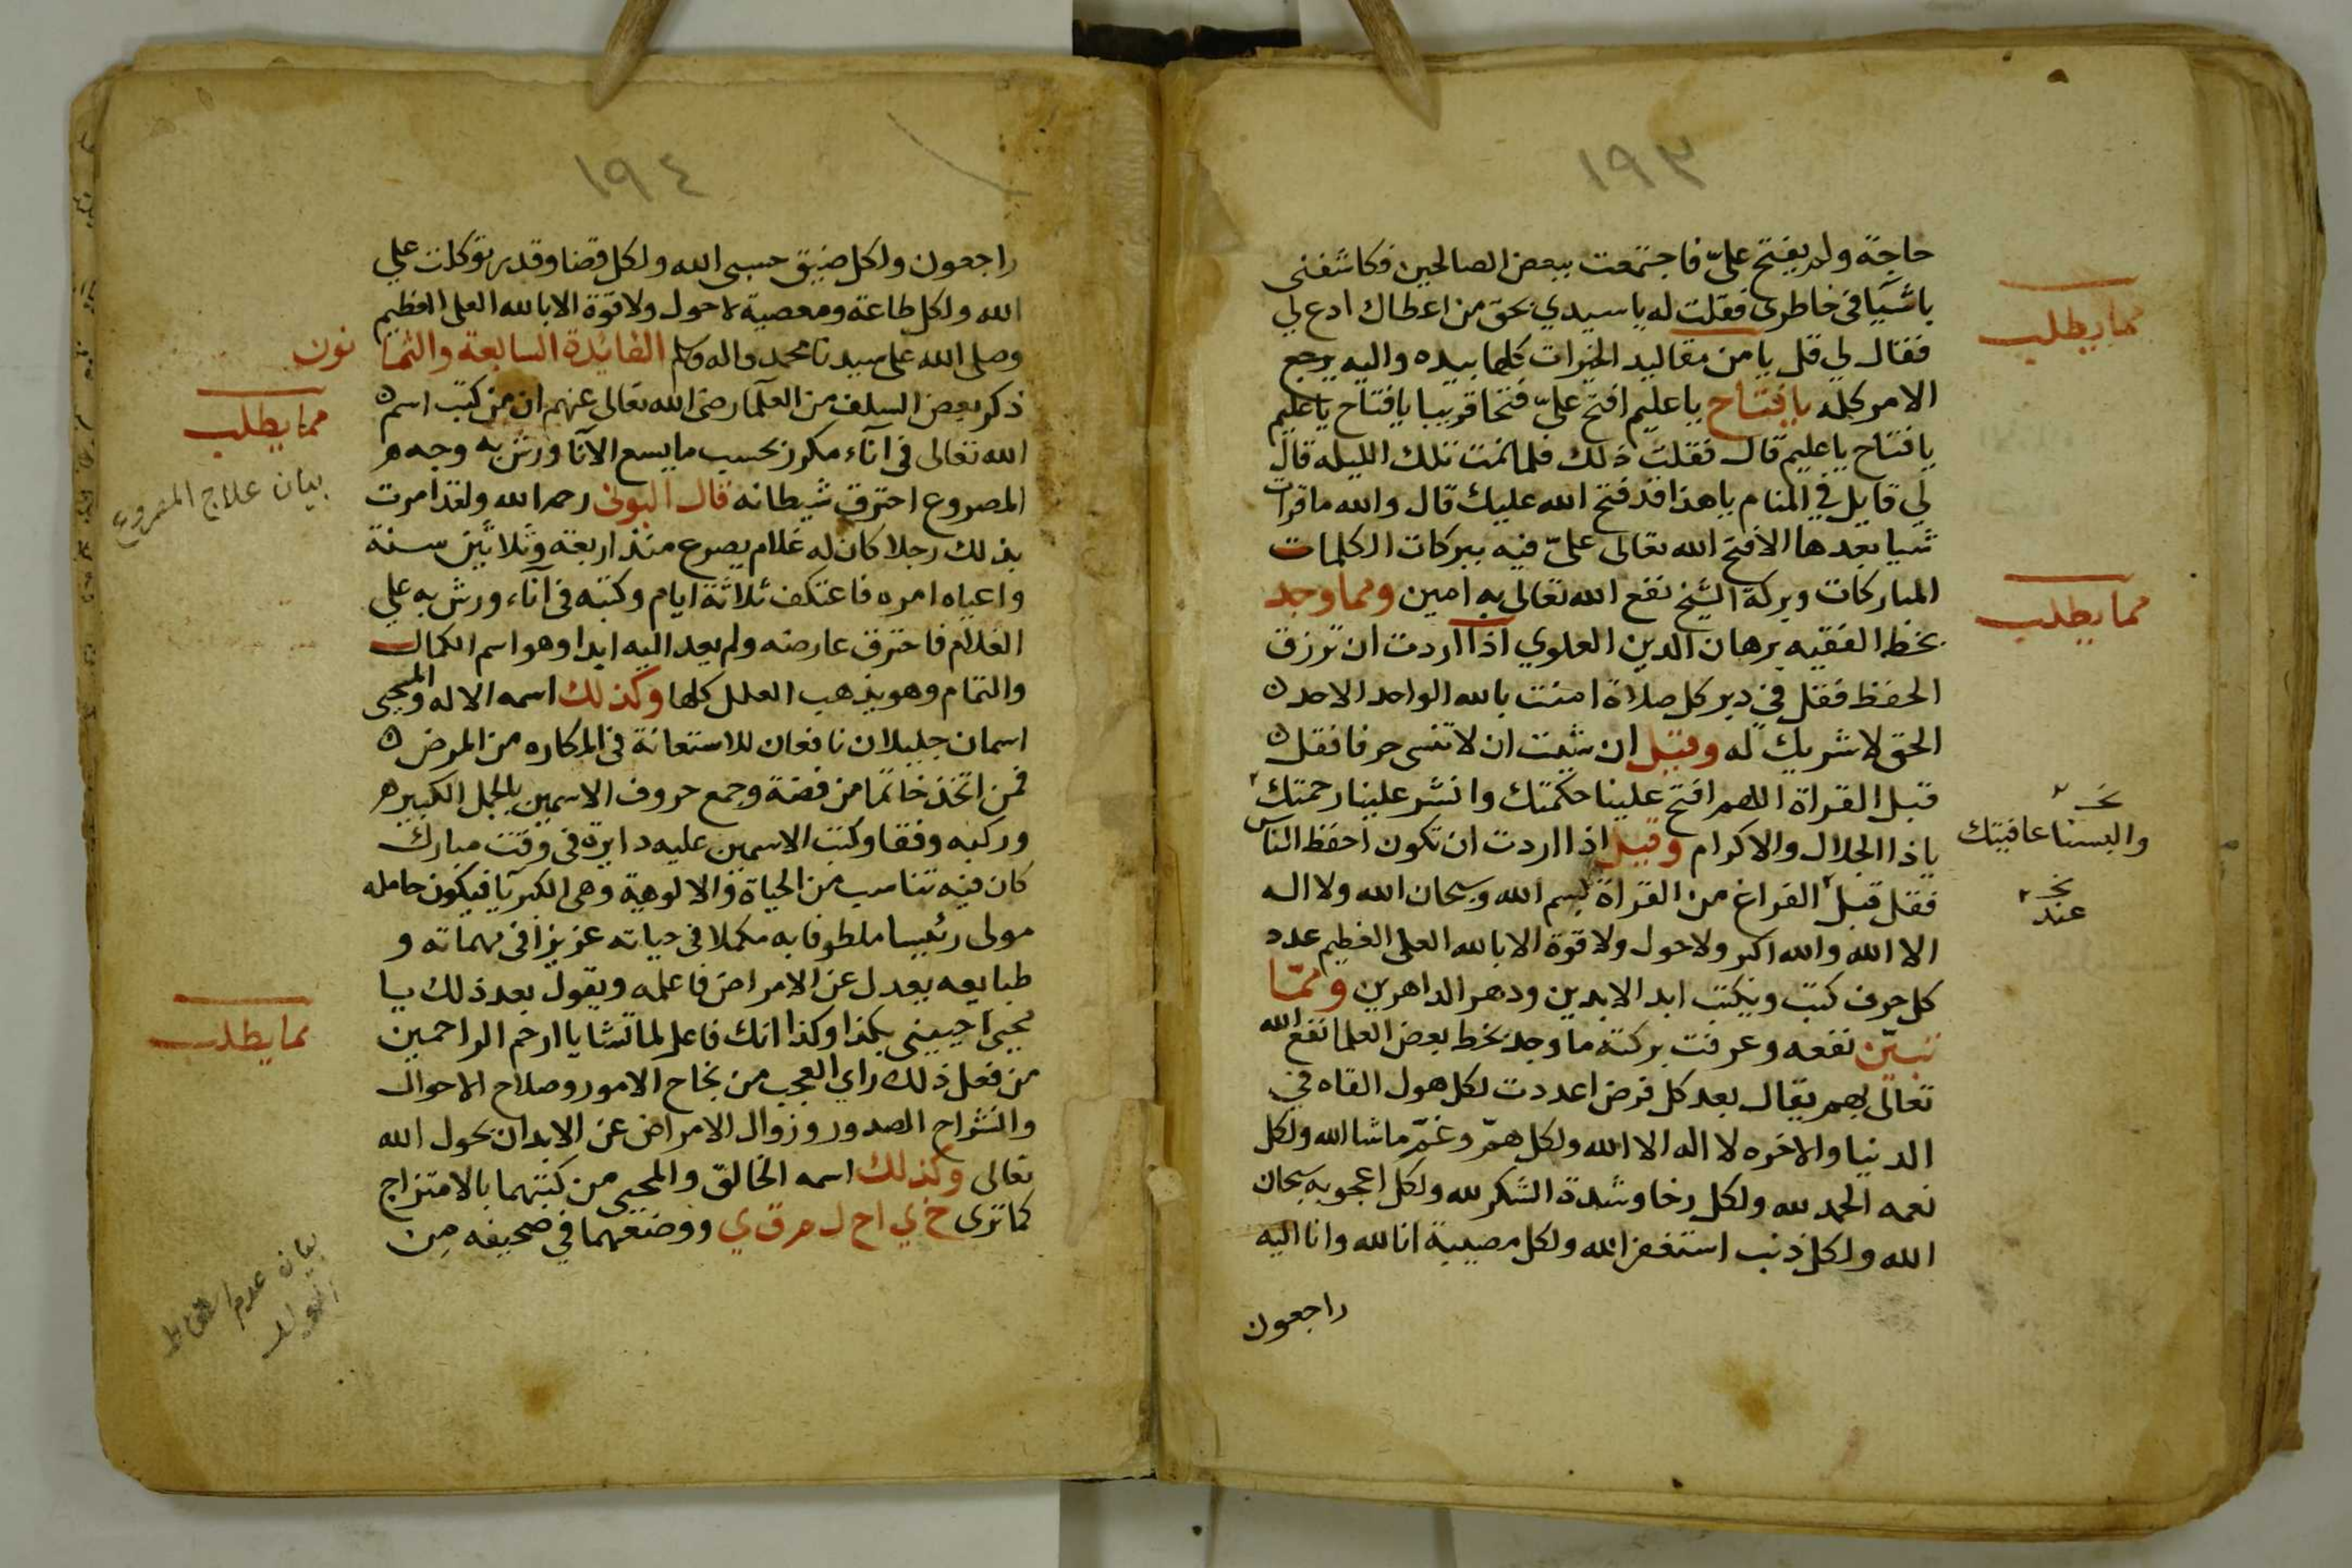 ١٩٣
حاجة ولم يفتح علىّ فاجتمعت ببعض الصالحين فكاشفنى
باشيآ فى خاطرى فقلت له يا سيدي بحق من اعطاك ادع لي
فقال لي قل يا من مقاليد الخيرات كلها بيده واليه يرجع
الامر كله يا فتاح يا عليم افتح علىّ فتحا قريبا يا فتاح يا عليم
يا فتاح يا عليم قال فقلت ذلك فلما نمت تلك الليله قال
لي قايل في المنام يا هذا قد فتح الله عليك قال والله ما قرات
شيا بعدها الا فتح الله تعالى علىّ فيه ببركات الكلمات
المباركات وبركة الشيخ نفع الله تعالى به امين ومما وجد
بخط الفقيه برهان الدين العلوي اذا اردت ان ترزق
الحفظ فقل في دبر كل صلاة امنت بالله الواحد الاحد
الحق لا شريك له وقيل ان شيت ان لا تنسى حرفا فقل
قبل القراة اللهم افتح علينا حكمتك وانشر علينا رحمتك
ياذا الجلال والاكرام وقيل اذا اردت ان تكون احفظ الناس
فقل قبل الفراغ من القراة بسم الله وسبحان الله ولا اله
الا الله والله اكبر ولا حول ولا قوة الا بالله العلى العظيم عدد
كل حرف كتب ويكتب ابد الابدين ودهر الداهرين وممّا
تبيّن نفعه وعرفت بركته ما وجد بخط بعض العلما نفع الله
تعالى بهم يقال بعد كل فرض اعددت لكل هول القاه في
الدنيا والاخره لا اله الا الله ولكل همّ وغمّ ما شا الله ولكل
نعمه الحمد لله ولكل رخا وشدة الشكر لله ولكل اعجوبه سبحان
الله ولكل ذنب استغفر الله ولكل مصيبة انا لله وانا اليه
راجعون
مما يطلب
مما يطلب
نخـ
والبسنا عافيتك
نخـ
عند
١٩٤
راجعون ولكل ضيق حسبى الله ولكل قضا وقدر توكلت علي
الله ولكل طاعة ومعصية لا حول ولا قوة الا بالله العلى العظيم
وصلى الله على سيدنا محمد واله وسلم الفائدة السابعة والثما نون
ذكر بعض السلف من العلمآ رضى الله تعالى عنهم ان من كتب اسم
الله تعالى فى آناء مكرر بحسب ما يسع الآنا ورش به وجه
المصروع احترق شيطانه قال البونى رحمه الله ولقد امرت
بذلك رجلا كان له غلام يصرع منذ اربعة وثلاثين سنة
واعياه امره فاعتكف ثلاثة ايام وكتبه فى آناء ورش به على
الغلام فاحترق عارضه ولم يعد اليه ابدا وهو اسم الكمال
والتمام وهو يذهب العلل كلها وكذلك اسمه الاله والمحيى
اسمان جليلان نافعان للاستعانة فى المكاره من المرض
فمن اتخذ خاتما من فضة وجمع حروف الاسمين بالجمل الكبير
وركبه وفقا وكتب الاسمين عليه دايرة فى وقت مبارك
كان فيه تناسب من الحياة والالوهية وهى الكبريآ فيكون حامله
مولى رئيسا ملطوفا به مكملا فى حياته عزيزا فى مهماته و
طبايعه يعدل عن الامراض فاعلمه ويقول بعد ذلك يا
محيى احيينى بكذا وكذا انك فاعل لما تشا يا ارحم الراحمين
من فعل ذلك راي العجب من نجاح الامور وصلاح الاحوال
وانشراح الصدور وزوال الامراض عن الابدان بحول الله
تعالى وكذلك اسمه الخالق والمحيى من كتبهما بالامتزاج
كما ترى خ ي ا ح ل م ق ي ووضعهما في صحيفه من
مما يطلب
بيان علاج المصروع
مما يطلب
بيان عدم اسقاط
الولد